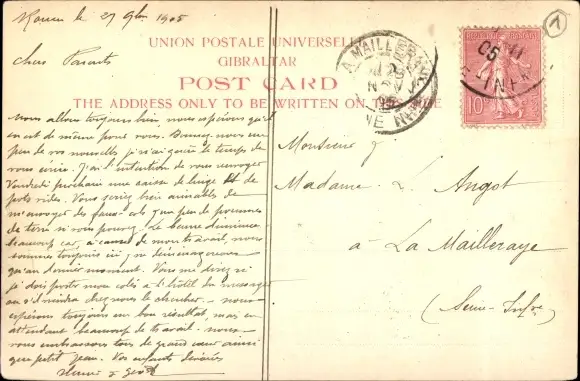 Rouen le 27 9bre 1905
Chers Parents
UNION POSTALE UNIVERSELLE
GIBRALTAR
POST CARD
THE ADDRESS ONLY TO BE WRITTEN ON THIS SIDE
Nous allons toujours bien nous espérons qu'il
en est de même pour vous. Donnez-nous un
peu de vos nouvelles, je n'ai guère le temps de
vous écrire. J'ai l'intention de vous envoyer
Vendredi prochain une caisse de linge et de
pots vides. Vous seriez bien aimables de
m'envoyer des faux-cols que peu de pommes
de terre si vous pouvez. Le beurre diminue
beaucoup car, à cause de mon travail, nous
sommes toujours ici, n
qu'au dernier moment. Vous me direz si
je dois porter mon colis à l'hôtel du messager
ou s'il viendra chez nous le chercher. nous
espérons toujours un bon résultat, mais en
attendant beaucoup de travail. nous
vous embrassons tous de grand cœur ainsi
que petit Jean. Vos enfants dévoués
LA MAILLERAYE
Monsieur &
Madame L. Angot
à La Mailleraye
(Seine-Infre)
RÉPUBLIQUE FRANÇAISE
10
05
E INFRE
1